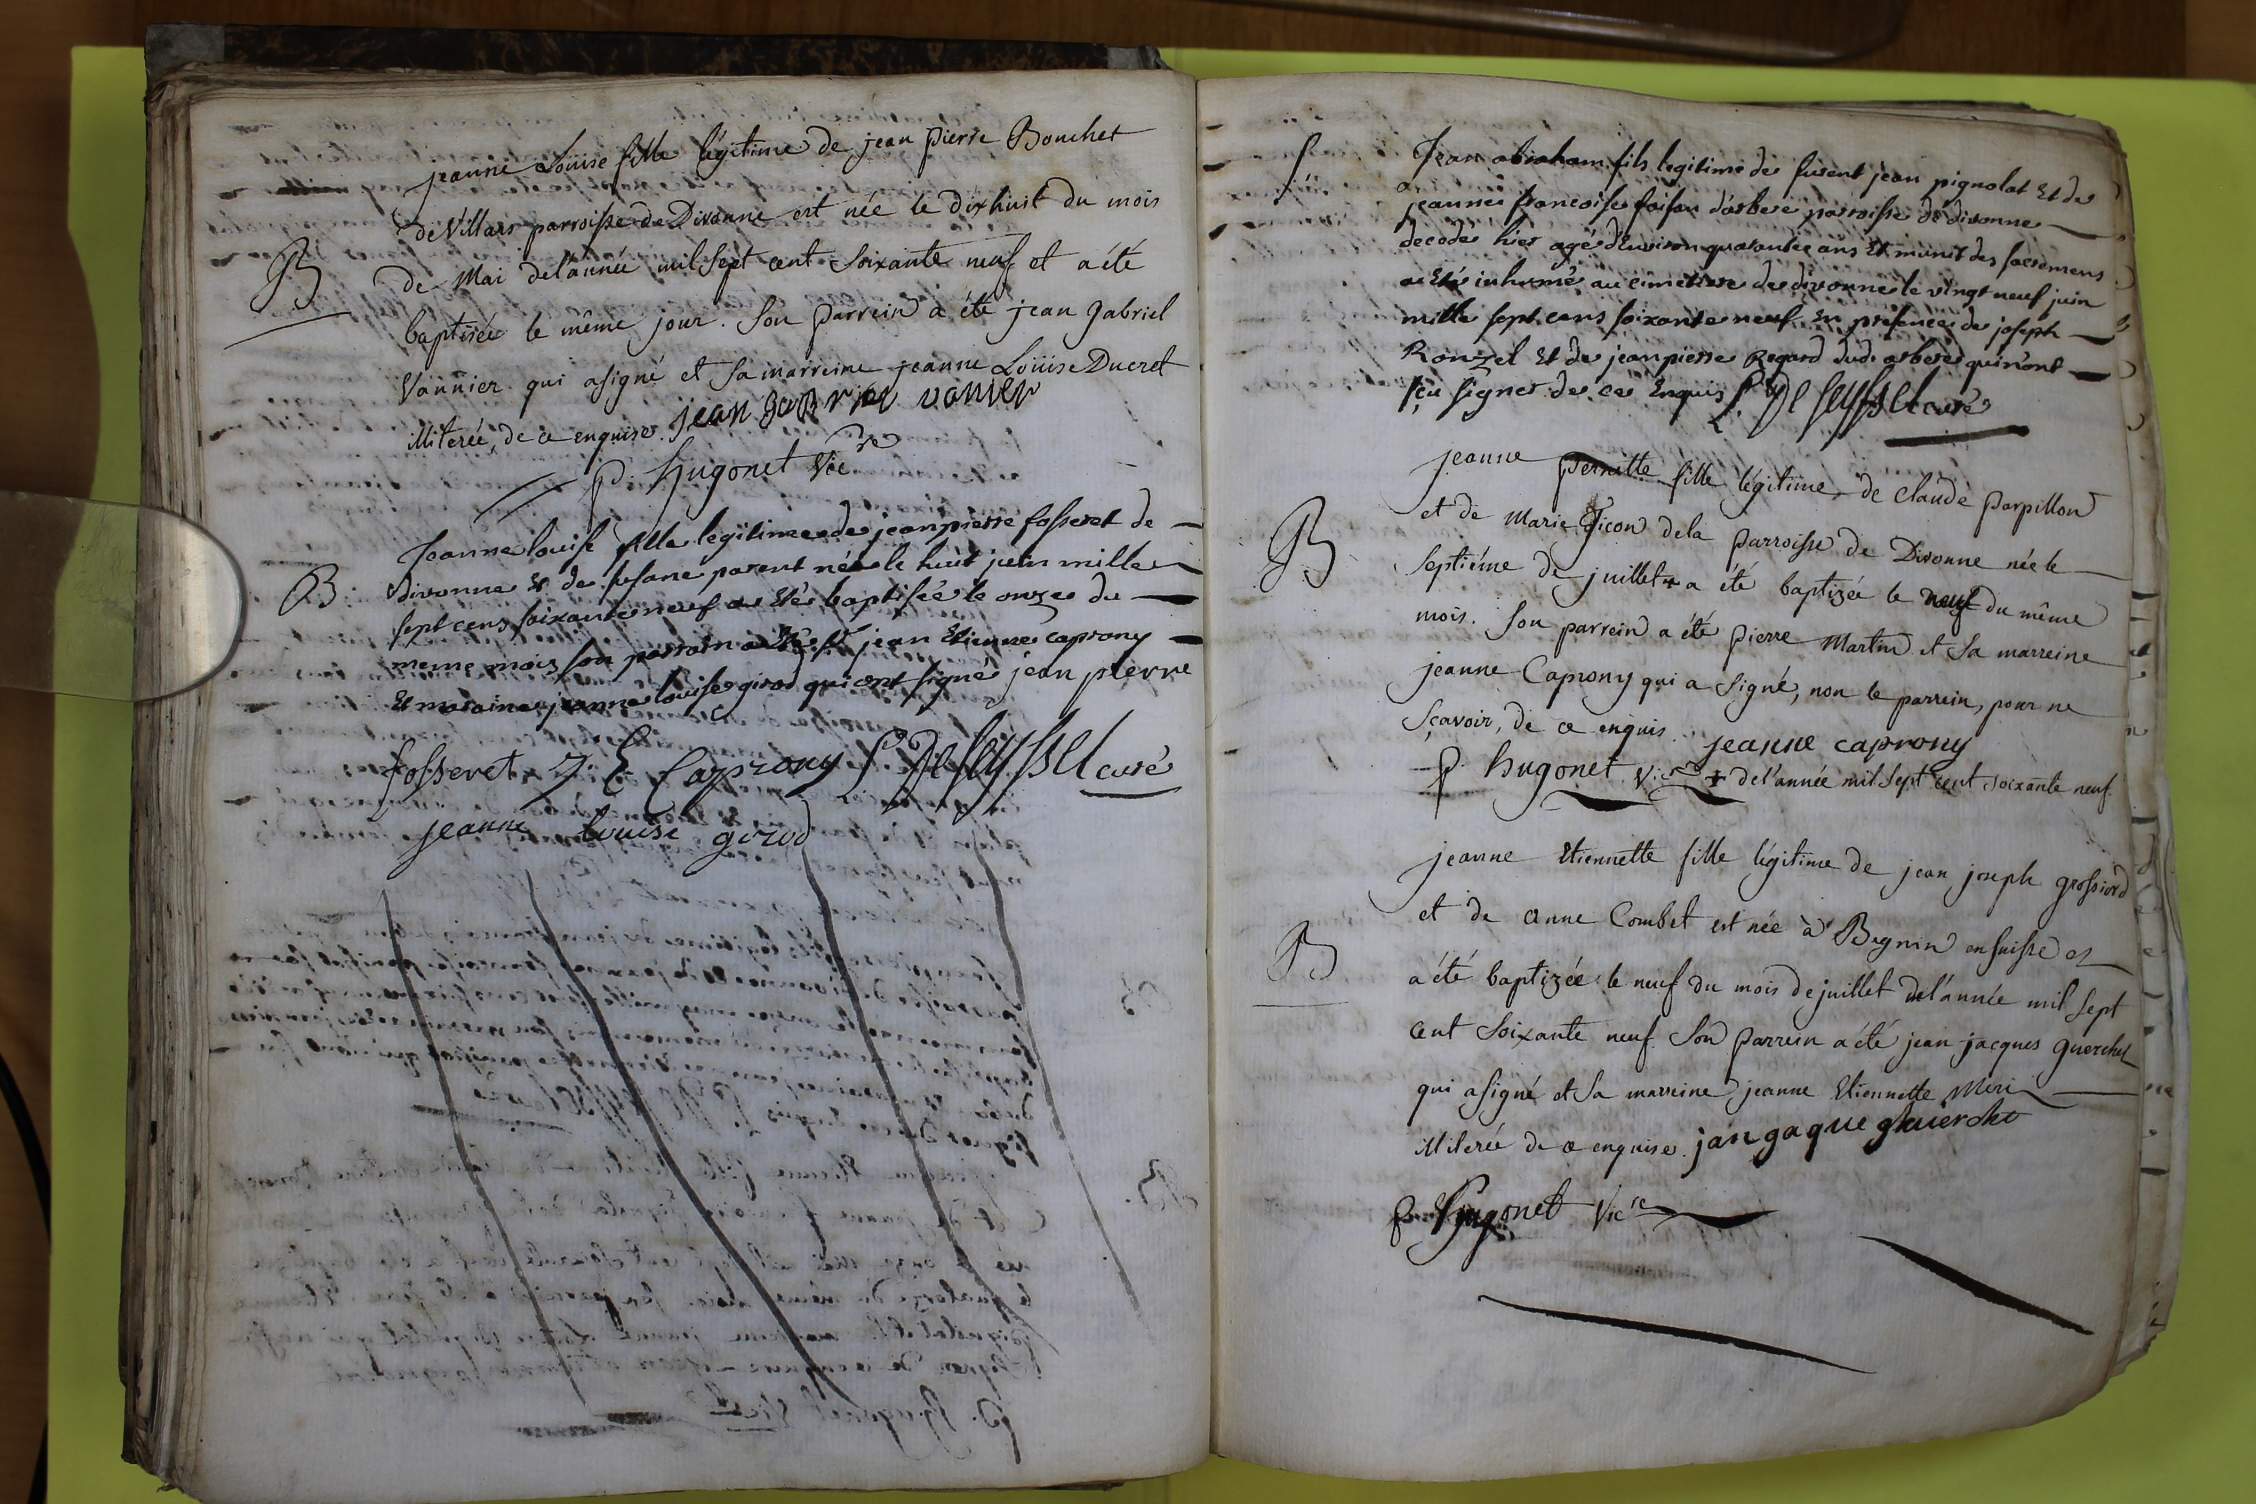 jeanne Loüise fille légitime de jean pierre Bouchet
de Villars parroisse de Divonne est née le dixhuit du mois
B
de Mai de l'année mil sept cent soixante neuf et a été
baptisée le même jour. Son parrein a été jean gabriel
Vannier qui a signé et sa marreine jeanne Loüise Ducret
illiterée, de ce enquise. jean gabriel vanier
p. hugonet Vic.re
Jeanne louise fille legitime de jeanpierre fosseret de
B
divonne et de susane parent née le huit juin mille
sept cens soixante neuf a eté baptisée le onze du
meme mois son parrain a eté jean etienne caprony
et maraine jeanne louise girod qui ont signé jean pierre
fosseret J. E Caprony De seyssel curé
jeanne louise girod
Jean abraham fils legitime de furent jean pignolat et de
jeanne francoise d'arbere parroisse de divonne
decedé hier agé d'environ quarante ans et munit des sacremens
a eté inhumé au cimetiere de divonne le vingt neuf juin
mille sept cens soixante neuf en presence de joseph
Ronzel et de jeanpierre Regard dud. arbere qui n'ont
sçu signer de ce enquis De seyssel curé
jeanne pernette fille légitime de claude parpillon
et de Marie Gicon de la parroisse de Divonne née le
B
septiéme de juillet + a été baptizée le neuf du même
mois. Son parrein a été pierre Martin et sa marreine
jeanne Caprony qui a signé, non le parrein, pour ne
sçavoir, de ce enquis. jeanne caprony
p. hugonet Vic.re + de l'année mil sept cent soixante neuf.
jeanne Etiennette fille légitime de jean joseph grossiord
et de anne Combet est née à Begnin en suisse et
B
a été baptizée le neuf du mois de juillet de l'année mil sept
cent soixante neuf. Son parrein a été jean jacques guerchet
qui a signé et sa marreine jeanne Etiennette Meri
illiterée de ce enquise. jan gaque
p. Hugonet Vic.re